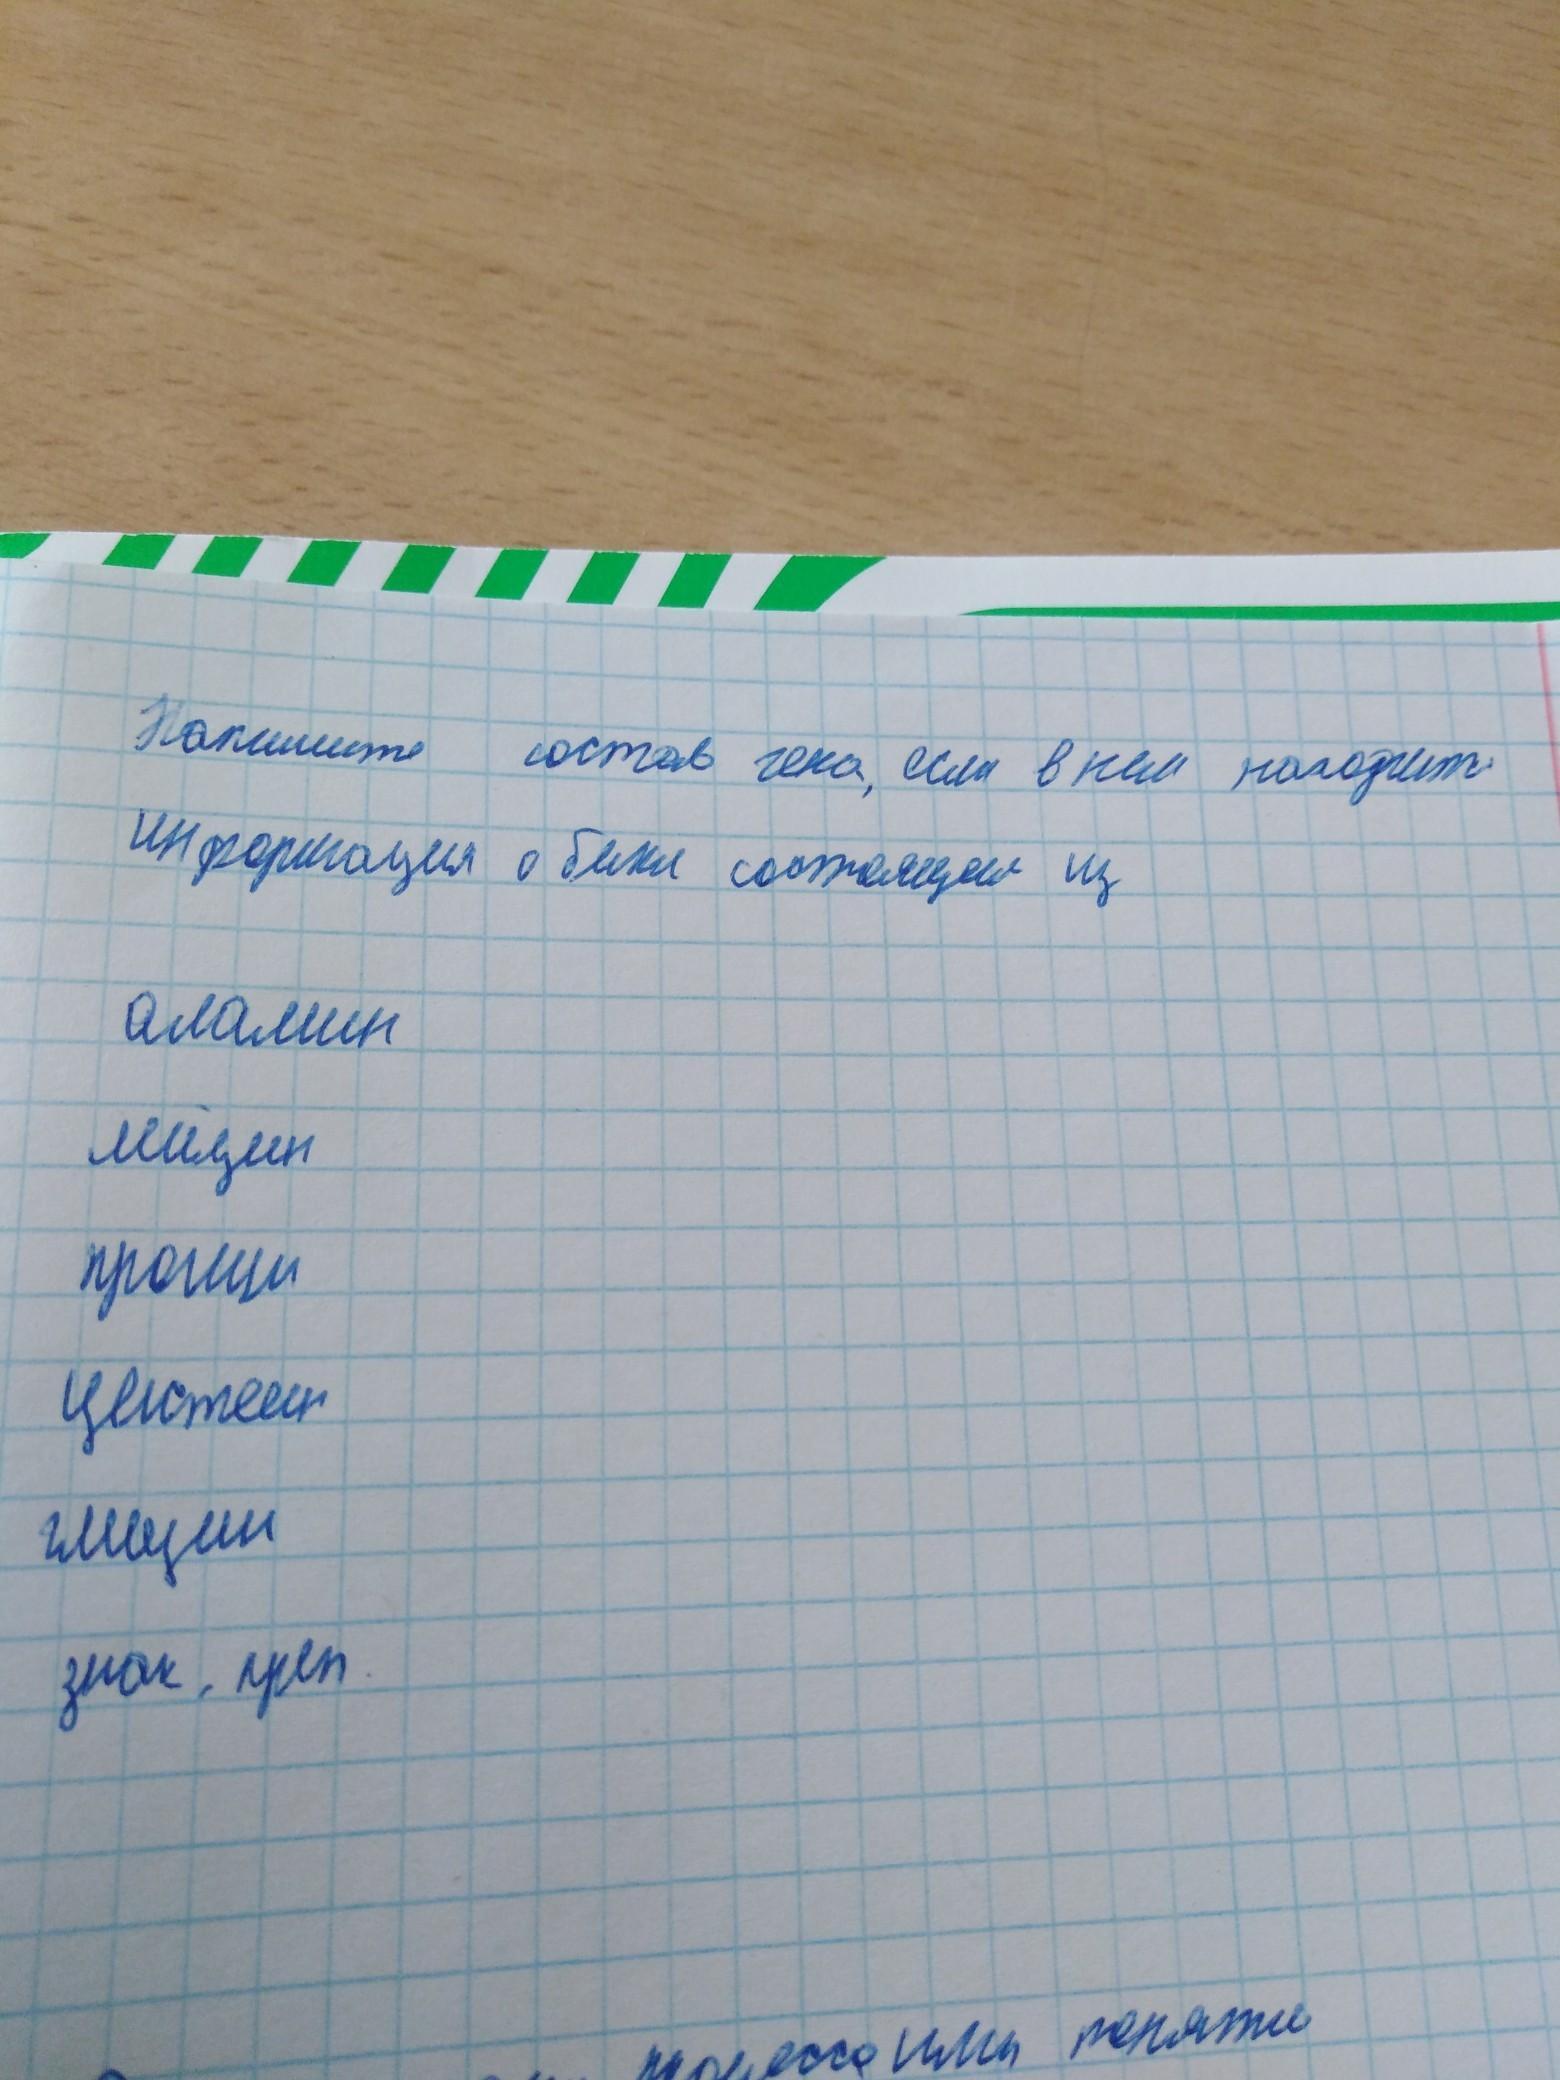 Напишите состав гена, если в нем находит
информация о белке состоящем из
аламин
лейцин
пролин
цистеин
глицин
знак. преп.
процесса или понятие